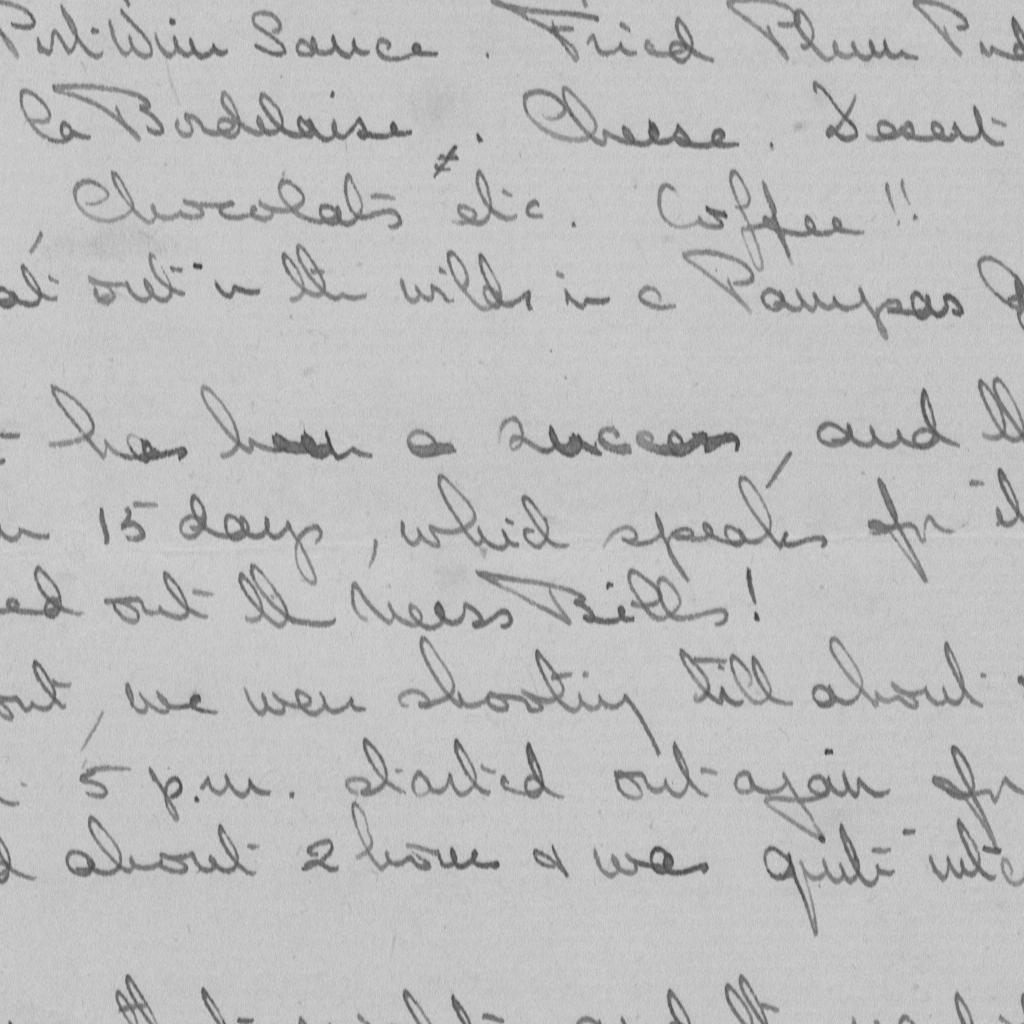 Port Wine Sauce . Fried Plum Pud
la Bordelaise . Cheese . Desert
, Chocolats etc . Coffee !!
at out in the wilds in a Pampas
has been a success , and th
15 days , which speaks for it
ed out the Mess Bills !
out , we were shooting till about
5 p.m. started out again for
d about 2 hours & was quite inte